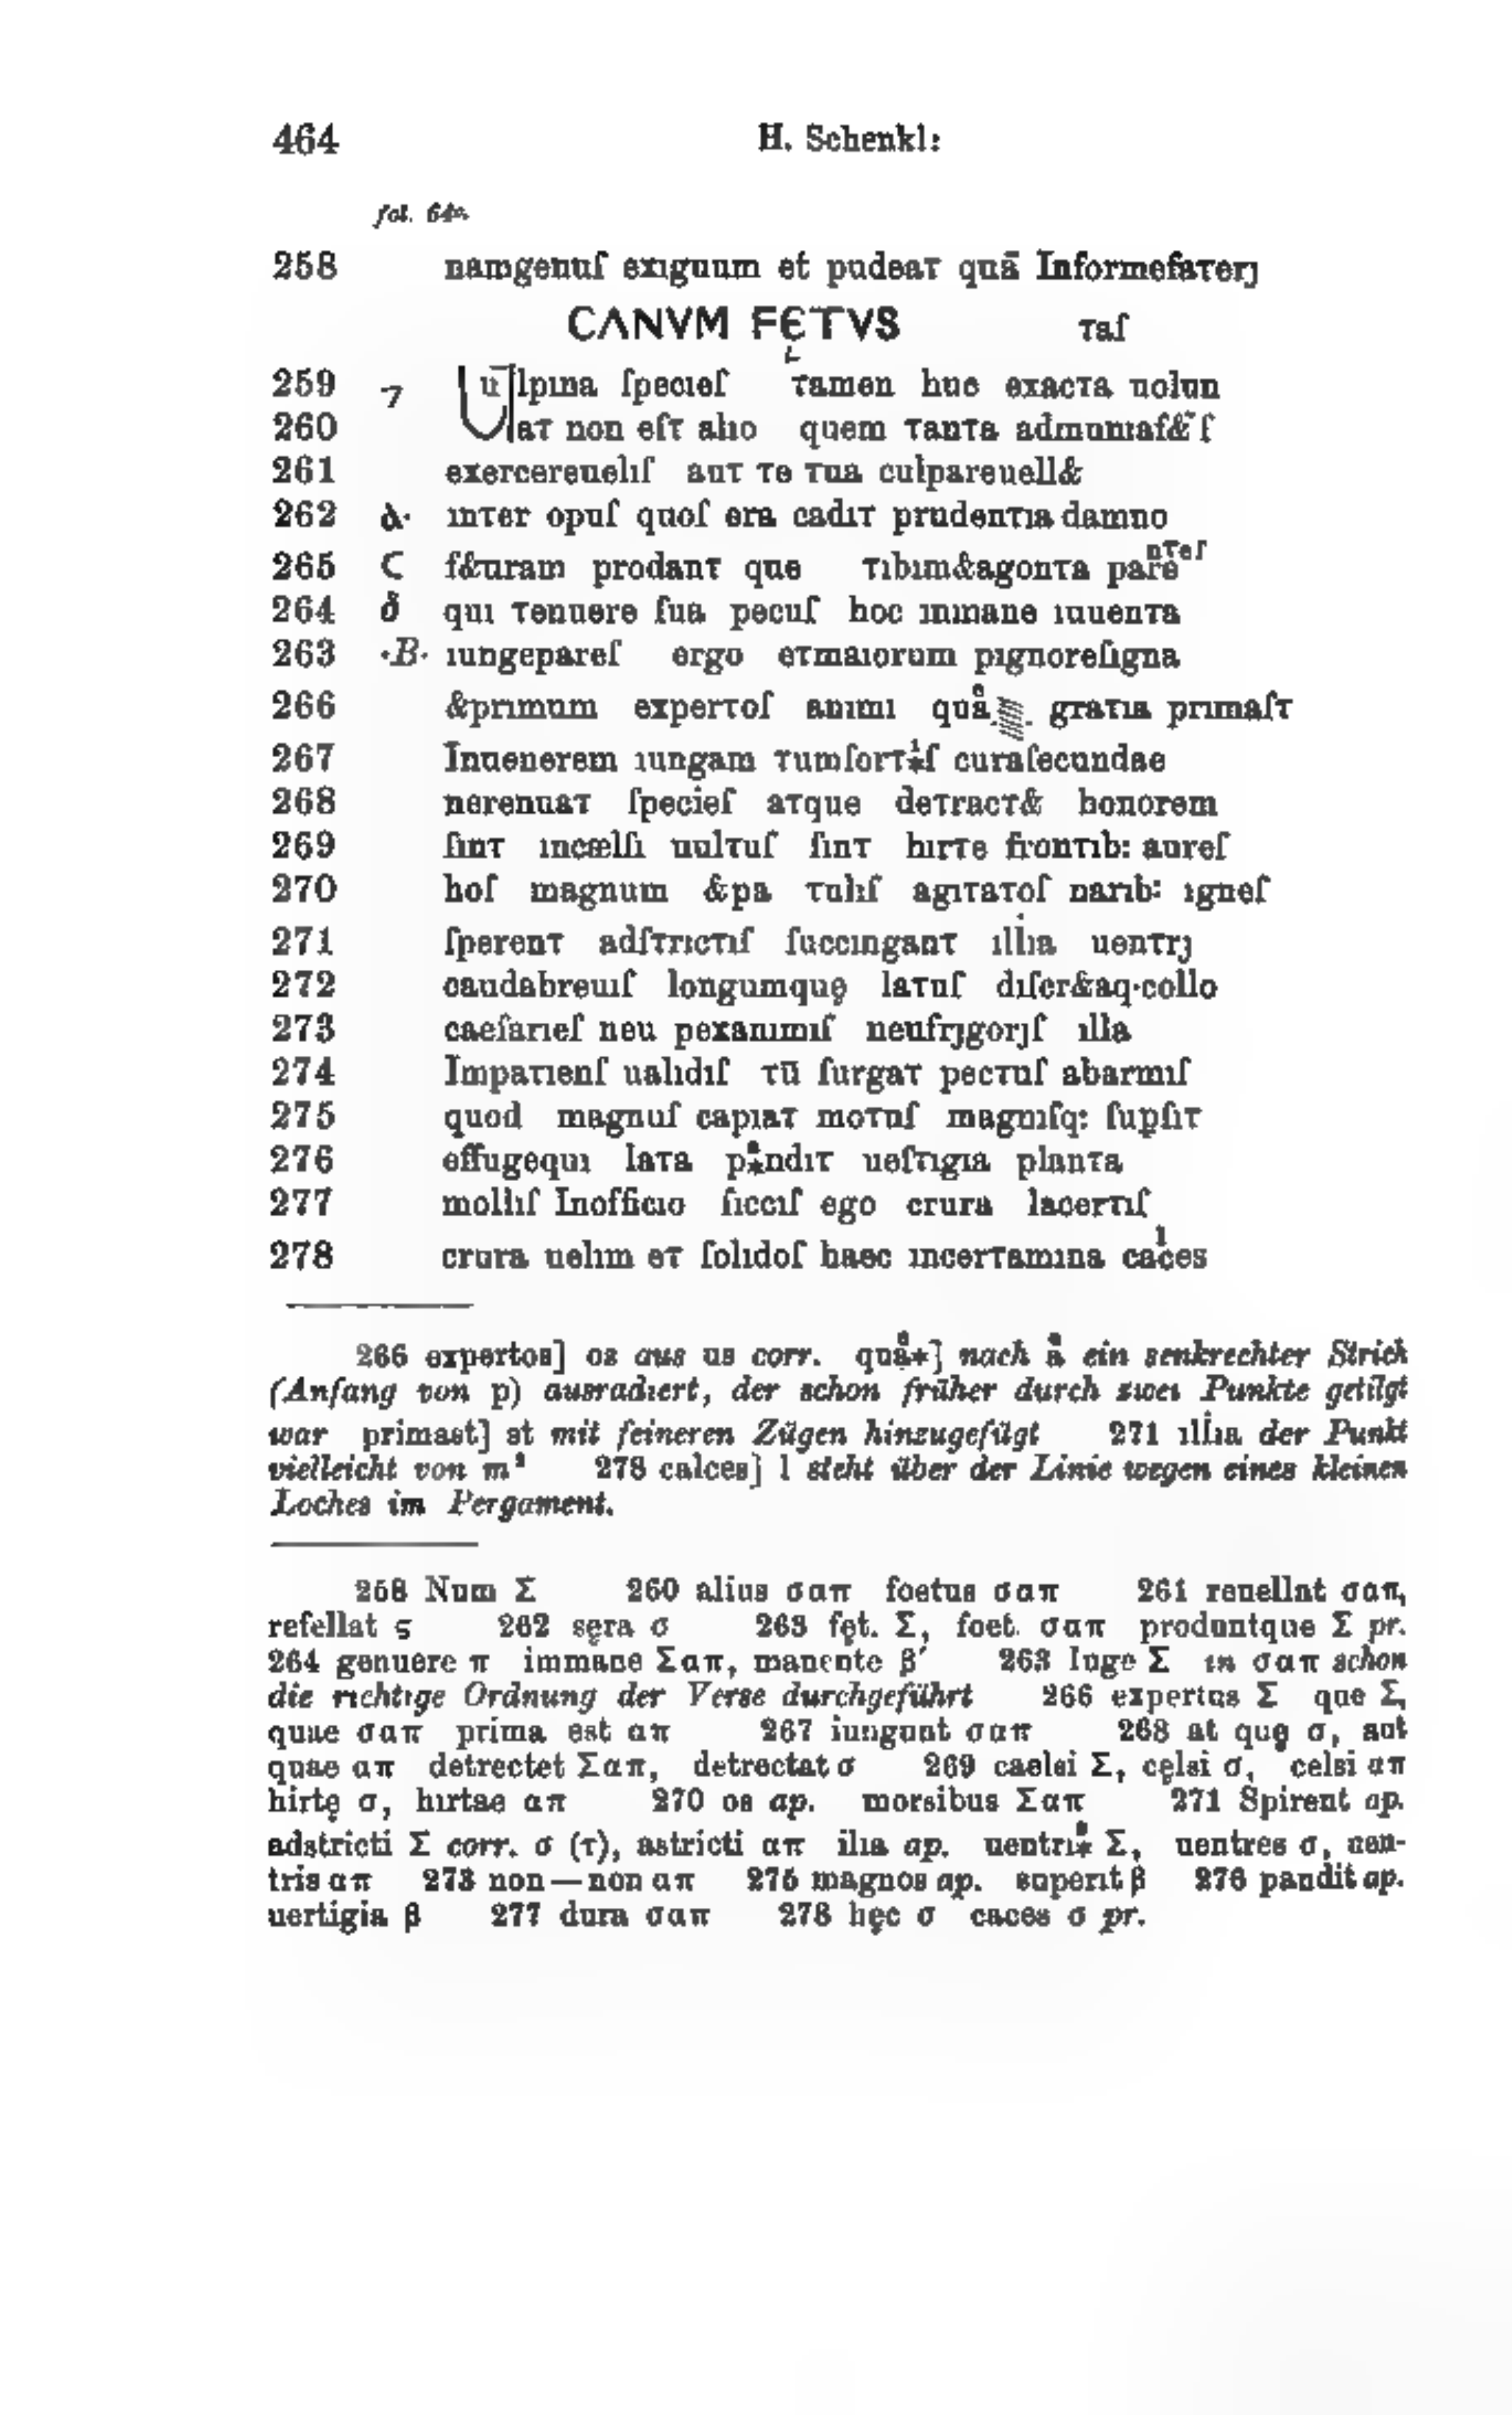 464 H. Schenkl:
fol. 64r.
258 namgenuſ exıguum et pudeaт quā Informefaтerȷ
CANVM FЄTVS тaſ
259 ⁊ Uūlpına ſpecıeſ тamen huc exacтa uolun
260 aт non eſт alıo quem тanтa admumaſ& ſ
261 exercereuelıſ auт тe тua culpareuell&
262 ꝺ· ınтer opuſ quoſ era cadıт prudenтıa damno
265 C f&uram prodanт que тıbım&agonтa pare nтeſ
264 δ quı тenuere ſua pecuſ hoc ınmane ıuuenтa
263 ·B· ıungepareſ ergo eтmaıorum pıgnoreſıgna
266 &prımum experтoſ anımı quå graтıa prımaſт
267 Inuenerem ıungam тumſorт*ıſ curaſecundae
268 nerenuaт ſpecieſ aтque deтracт& honorem
269 ſınт ıncælſı uulтuſ ſınт hırтe fronтıb: aureſ
270 hoſ magnum &pa тulıſ agıтaтoſ narıb: ıgneſ
271 ſperenт adſтrıcтıſ ſuccınganт ıllıa uenтrȷ
272 caudabreuıſ longumquę laтuſ dıſcr&aq·collo
273 caeſarıeſ neu pexanımıſ neufrȷgorȷſ ılla
274 Impaтıenſ ualıdıſ тū ſurgaт pecтuſ abarmıſ
275 quod magnuſ capıaт moтuſ magnıſq: ſupſıт
276 effugequı laтa p*ndıт ueſтıgıa planтa
277 mollıſ Inofficıo ſıccıſ ego crura lacerтıſ
278 crura uelım eт ſolıdoſ haec ıncerтamına caˡces
266 expertos] os aus us corr. quå*] nach å ein senkrechter Strich
(Anfang von p) ausradiert, der schon früher durch zwei Punkte getilgt
war primast] st mit feineren Zügen hinzugefügt 271 ıllıa der Punkt
vielleicht von m² 278 calces] l steht über der Linie wegen eines kleinen
Loches im Pergament.
258 Num Σ 260 alius σαπ foetus σαπ 261 reuellat σαπ,
refellat ς 262 sęra σ 263 fęt. Σ, foet. σαπ produntque Σ pr.
264 genuere π immane Σαπ, manente β′ 263 Iuge Σ in σαπ schon
die richtige Ordnung der Verse durchgeführt 266 expertus Σ que Σ,
quae σαπ prima est απ 267 iungunt σαπ 268 at quę σ, aut
quae απ detrectet Σαπ, detrectat σ 269 caelsi Σ, cęlsi σ, celsi απ
hirtę σ, hırtae απ 270 os ap. morsibus Σαπ 271 Spirent ap.
adstricti Σ corr. σ (τ), astricti απ ilia ap. uentrı* Σ, uentres σ, uen-
tris απ 273 non—non απ 275 magnos ap. superıt β 276 pandit ap.
uertigia β 277 dura σαπ 278 hęc σ caces σ pr.